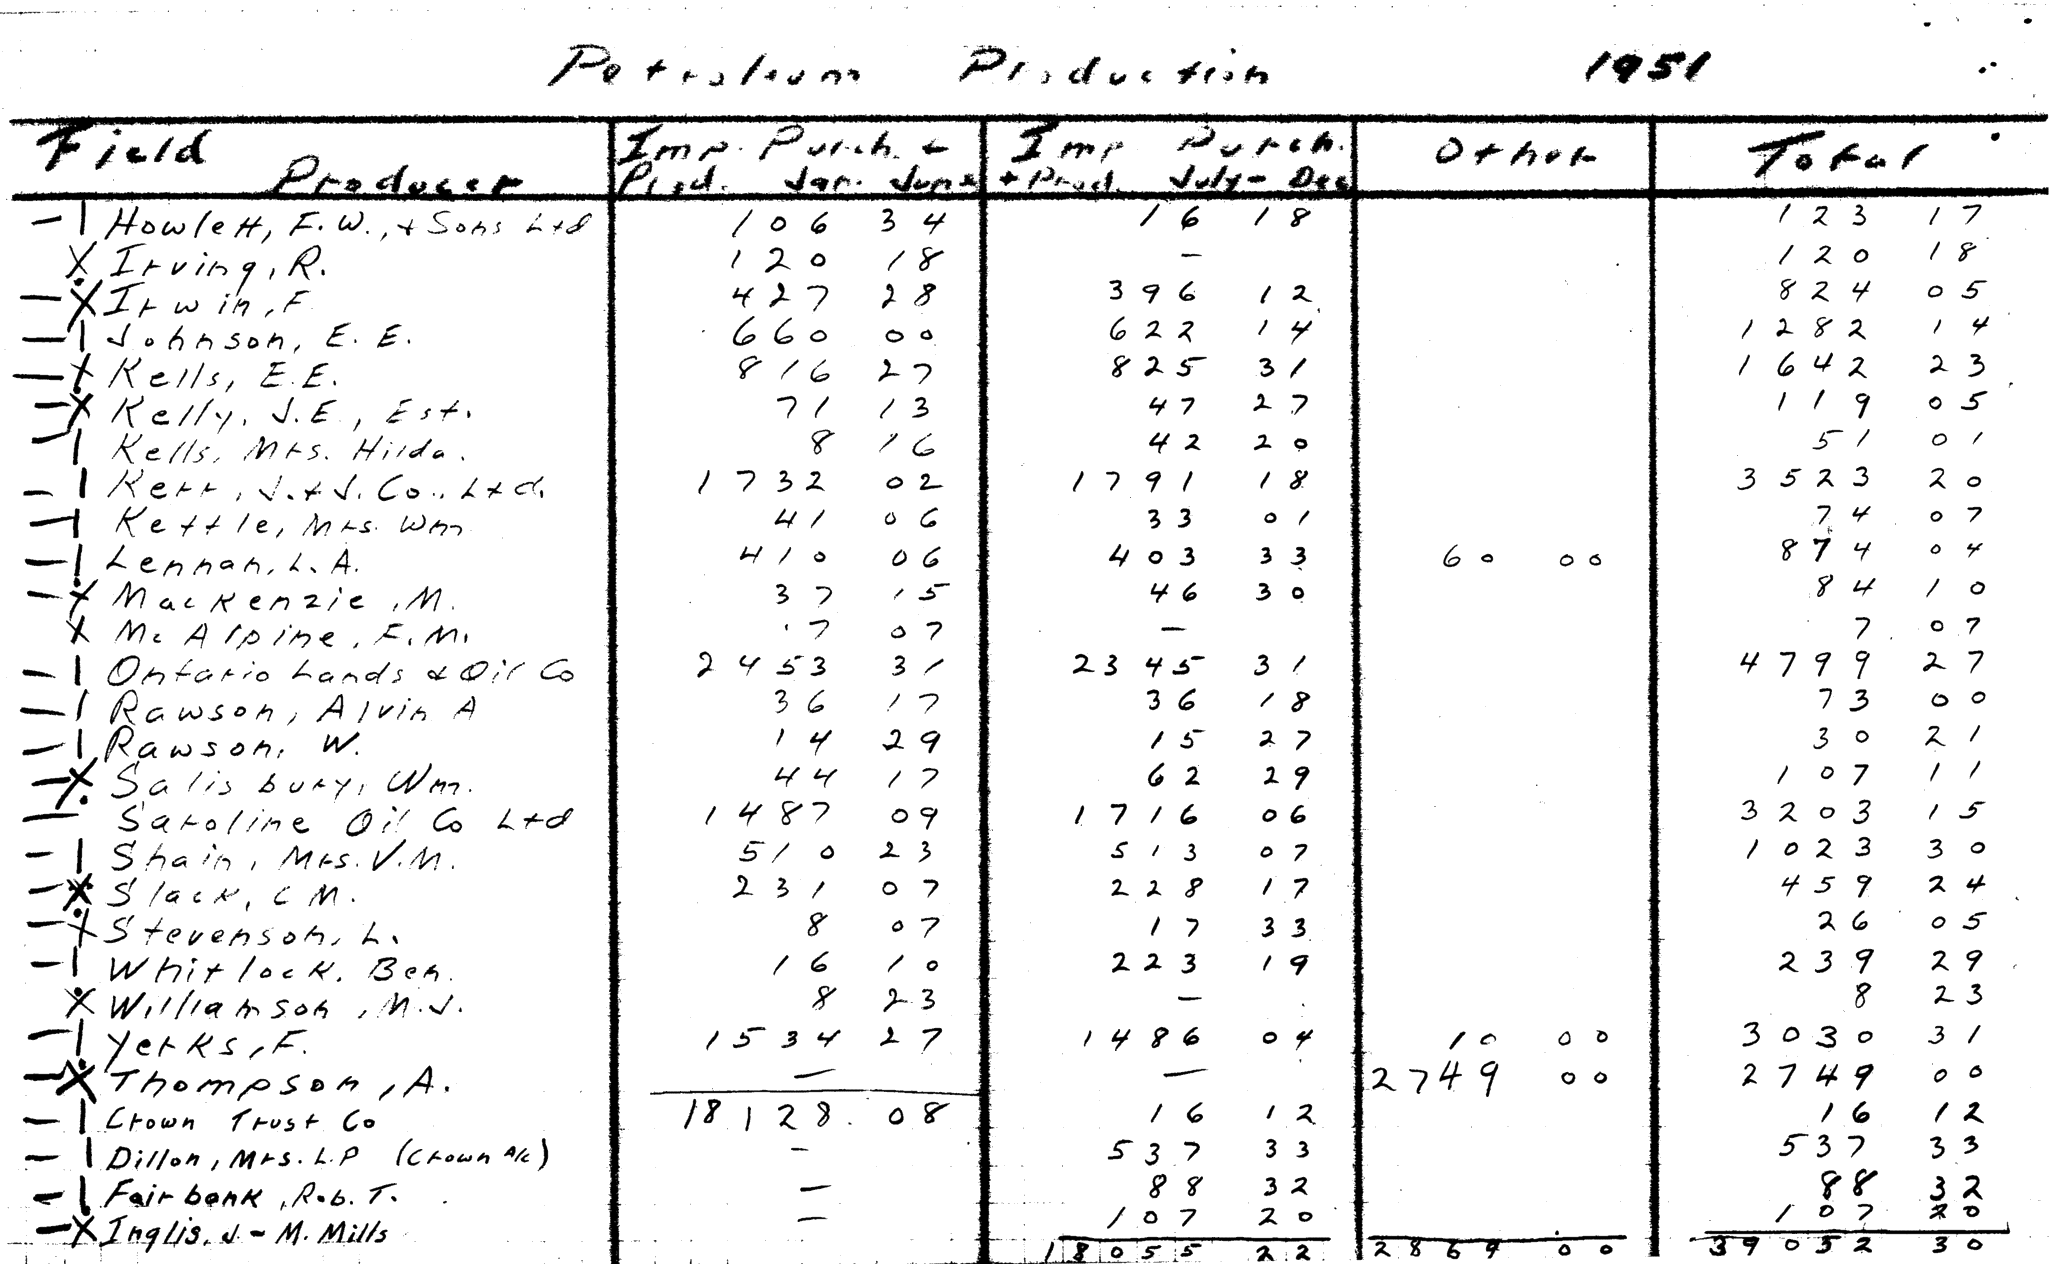 Petroleum Production 1951
Field Producer Imp. Purch. + Prod. Jan. June Imp Purch. + Prod. July - Dec Other Total
— 1 Howlett, F.W., + Sons Ltd 106 34 16 18 123 17
X Irving, R. 120 18 — 120 18
— X Irwin, F 427 28 396 12 824 05
— 1 Johnson, E. E. 660 00 622 14 1282 14
— X Kells, E.E. 816 27 825 31 1642 23
— X Kelly, J.E., Est. 71 13 47 27 119 05
— 1 Kells, Mrs. Hilda. 8 16 42 20 51 01
— 1 Kerr, J. + J. Co., Ltd. 1732 02 1791 18 3523 20
— 1 Kettle, Mrs. Wm 41 06 33 01 74 07
— 1 Lennan, L. A. 410 06 403 33 60 00 874 04
— X Mackenzie, M. 37 15 46 30 84 10
X McAlpine, F.M. 7 07 — 7 07
— 1 Ontario Lands & Oil Co 2453 31 2345 31 4799 27
— 1 Rawson, Alvin A 36 17 36 18 73 00
— 1 Rawson, W. 14 29 15 27 30 21
— X Salisbury, Wm. 44 17 62 29 107 11
— Saroline Oil Co Ltd 1487 09 1716 06 3203 15
— 1 Shain, Mrs. V.M. 510 23 513 07 1023 30
— X Slack, C M. 231 07 228 17 459 24
— X Stevenson, L. 8 07 17 33 26 05
— 1 Whitlock, Ben. 16 10 223 19 239 29
X Williamson, M.J. 8 23 — 8 23
— 1 Yerks, F. 1534 27 1486 04 10 00 3030 31
— X Thompson, A. — — 2749 00 2749 00
— 1 Crown Trust Co 18128.08 16 12 16 12
— 1 Dillon, Mrs. L.P (Crown A/c) — 537 33 537 33
— 1 Fairbank, Rob. T. — 88 32 88 32
— X Inglis, J - M. Mills — 107 20 107 20
18055 22 2869 00 39052 30